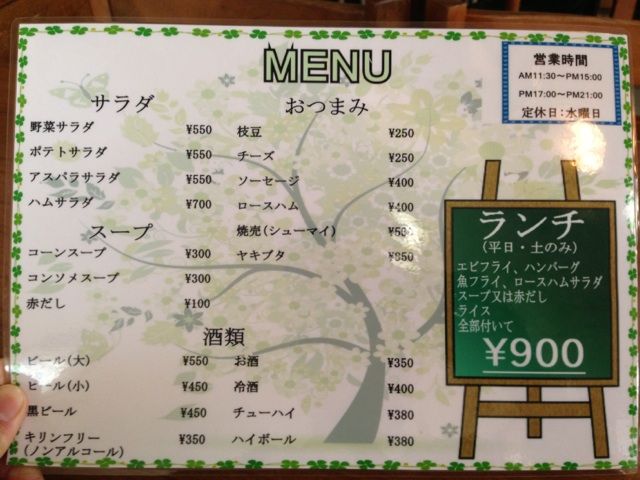 MENU
営業時間
AM11:30～PM15:00
PM17:00～PM21:00
定休日：水曜日
サラダ
野菜サラダ ¥550
ポテトサラダ ¥550
アスパラサラダ ¥550
ハムサラダ ¥700
スープ
コーンスープ ¥300
コンソメスープ ¥300
赤だし ¥100
おつまみ
枝豆 ¥250
チーズ ¥250
ソーセージ ¥400
ロースハム ¥400
焼売(シューマイ)
ヤキブタ
酒類
ビール(大) ¥550
ビール(小) ¥450
黒ビール ¥450
キリンフリー ¥350
(ノンアルコール)
お酒 ¥350
冷酒 ¥400
チューハイ ¥380
ハイボール ¥380
ランチ
(平日・土のみ)
エビフライ、ハンバーグ
魚フライ、ロースハムサラダ
スープ又は赤だし
ライス
全部付いて
¥900